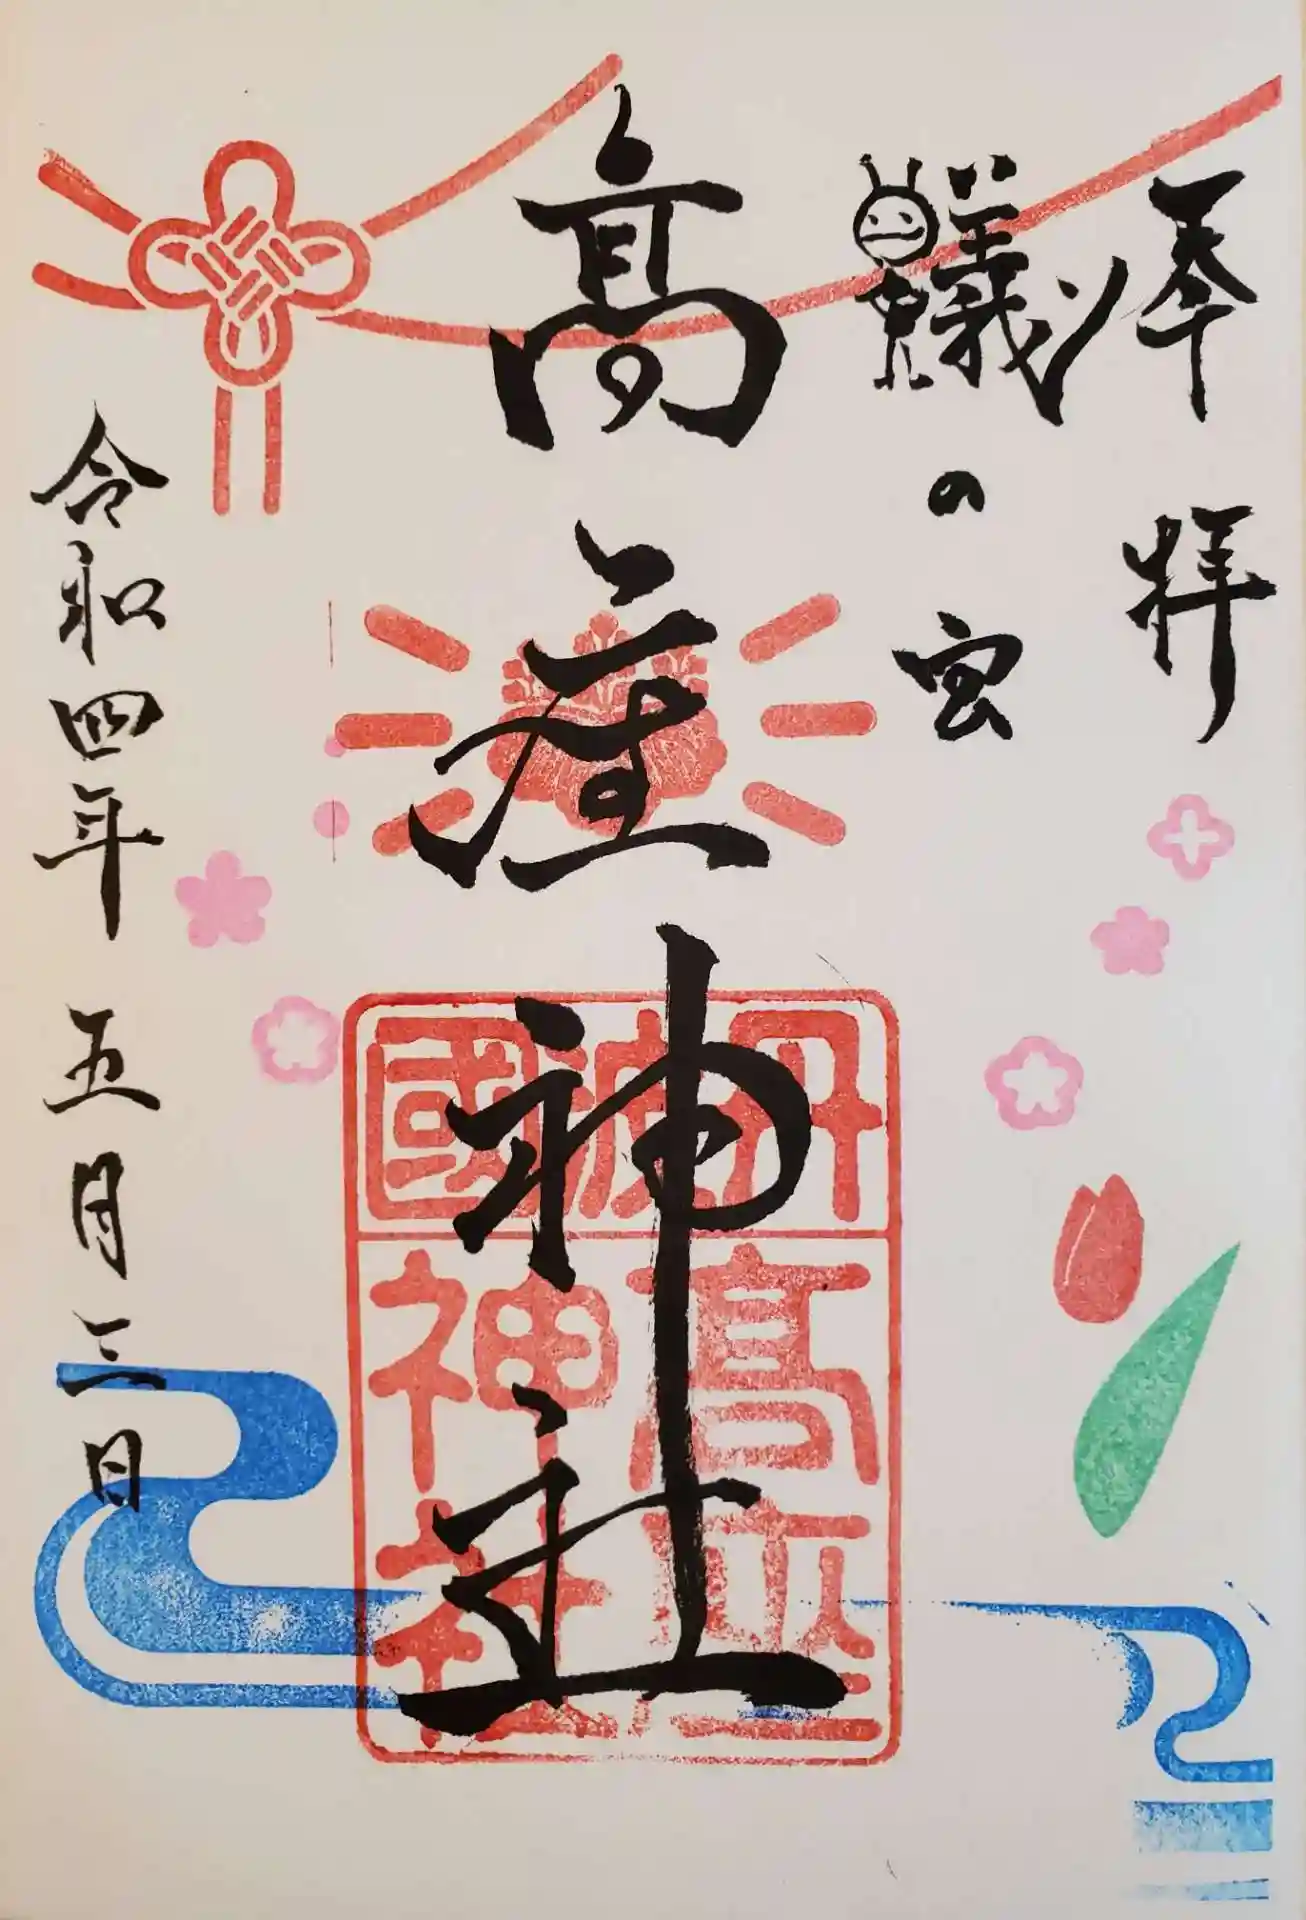 奉拝
蟻の宮
高座神社
丹波國
高座神社
令和四年五月三日